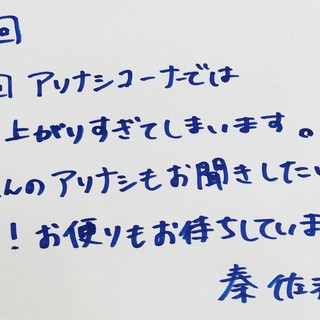 回
回 アリナシコーナーでは
上がりすぎてしまいます。
んのアリナシもお聞きしたい
！お便りもお待ちしていま
秦 佐